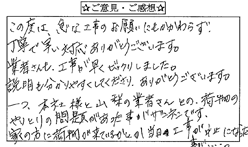 ☆ご意見・ご感想☆
この度は、急な工事のお願いにもかかわらず、
丁寧で早い対応ありがとうございます。
業者さんも、工事が早くビックリしました。
説明も分かりやすくしてくださり、ありがとうございます。
一つ、本社様と山梨の業者さんとの、荷物の
やりとりの問題があった事がザンネンです。
家の方に荷物が来ているかとか、当日の工事が